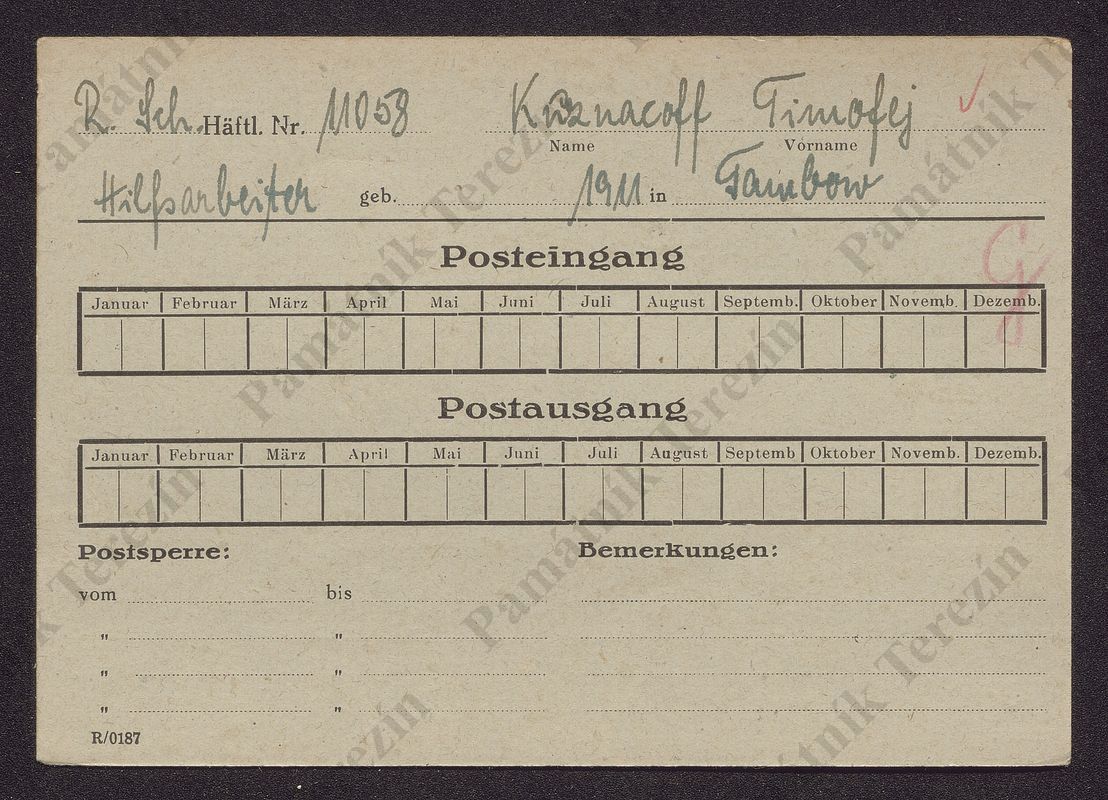 R. Sch. Häftl. Nr. 11058 Kusnacoff Timofej
Name Vorname
Hilfsarbeiter geb. 1911 in Tambow
Posteingang
Januar Februar März April Mai Juni Juli August Septemb. Oktober Novemb. Dezemb.
Postausgang
Januar Februar März April Mai Juni Juli August Septemb Oktober Novemb. Dezemb.
Postsperre: Bemerkungen:
vom bis
" "
" "
" "
R/0187
Památník Terezín